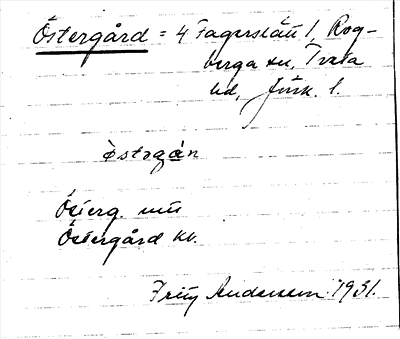 Östergård = 4 Fagerslätt 1, Rog-
berga sn, Tveta
hd, Jönk. l.
östərgán
Österg. mtl
Östergård kv.
Andersson 1931.